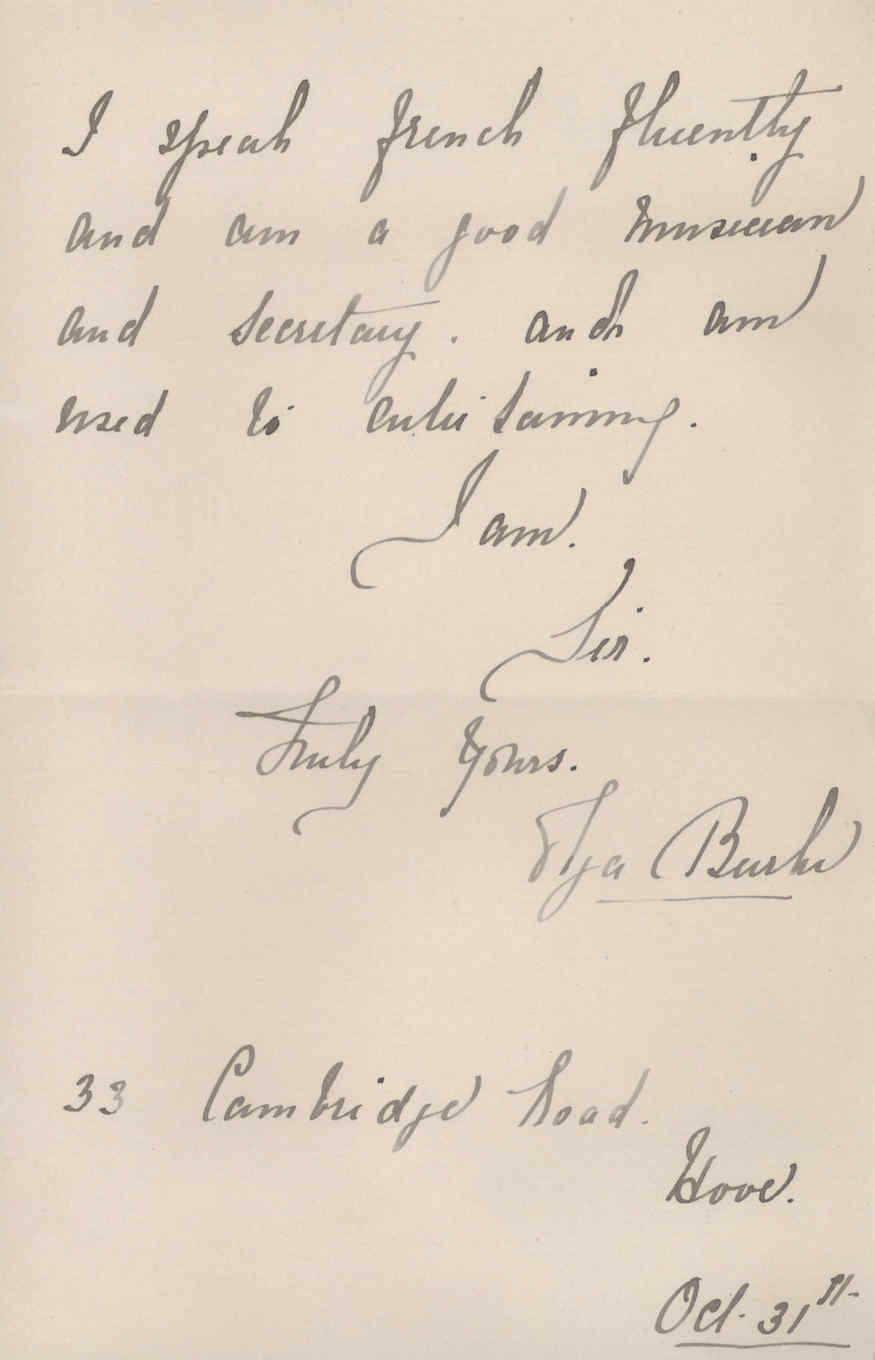 I speak french fluently
and am a good musician
and secretary. and am
used to entertaining.
I am.
Sir.
Truly Yours.
Olga Burke
33 Cambridge Road.
Hove.
Oct. 31st